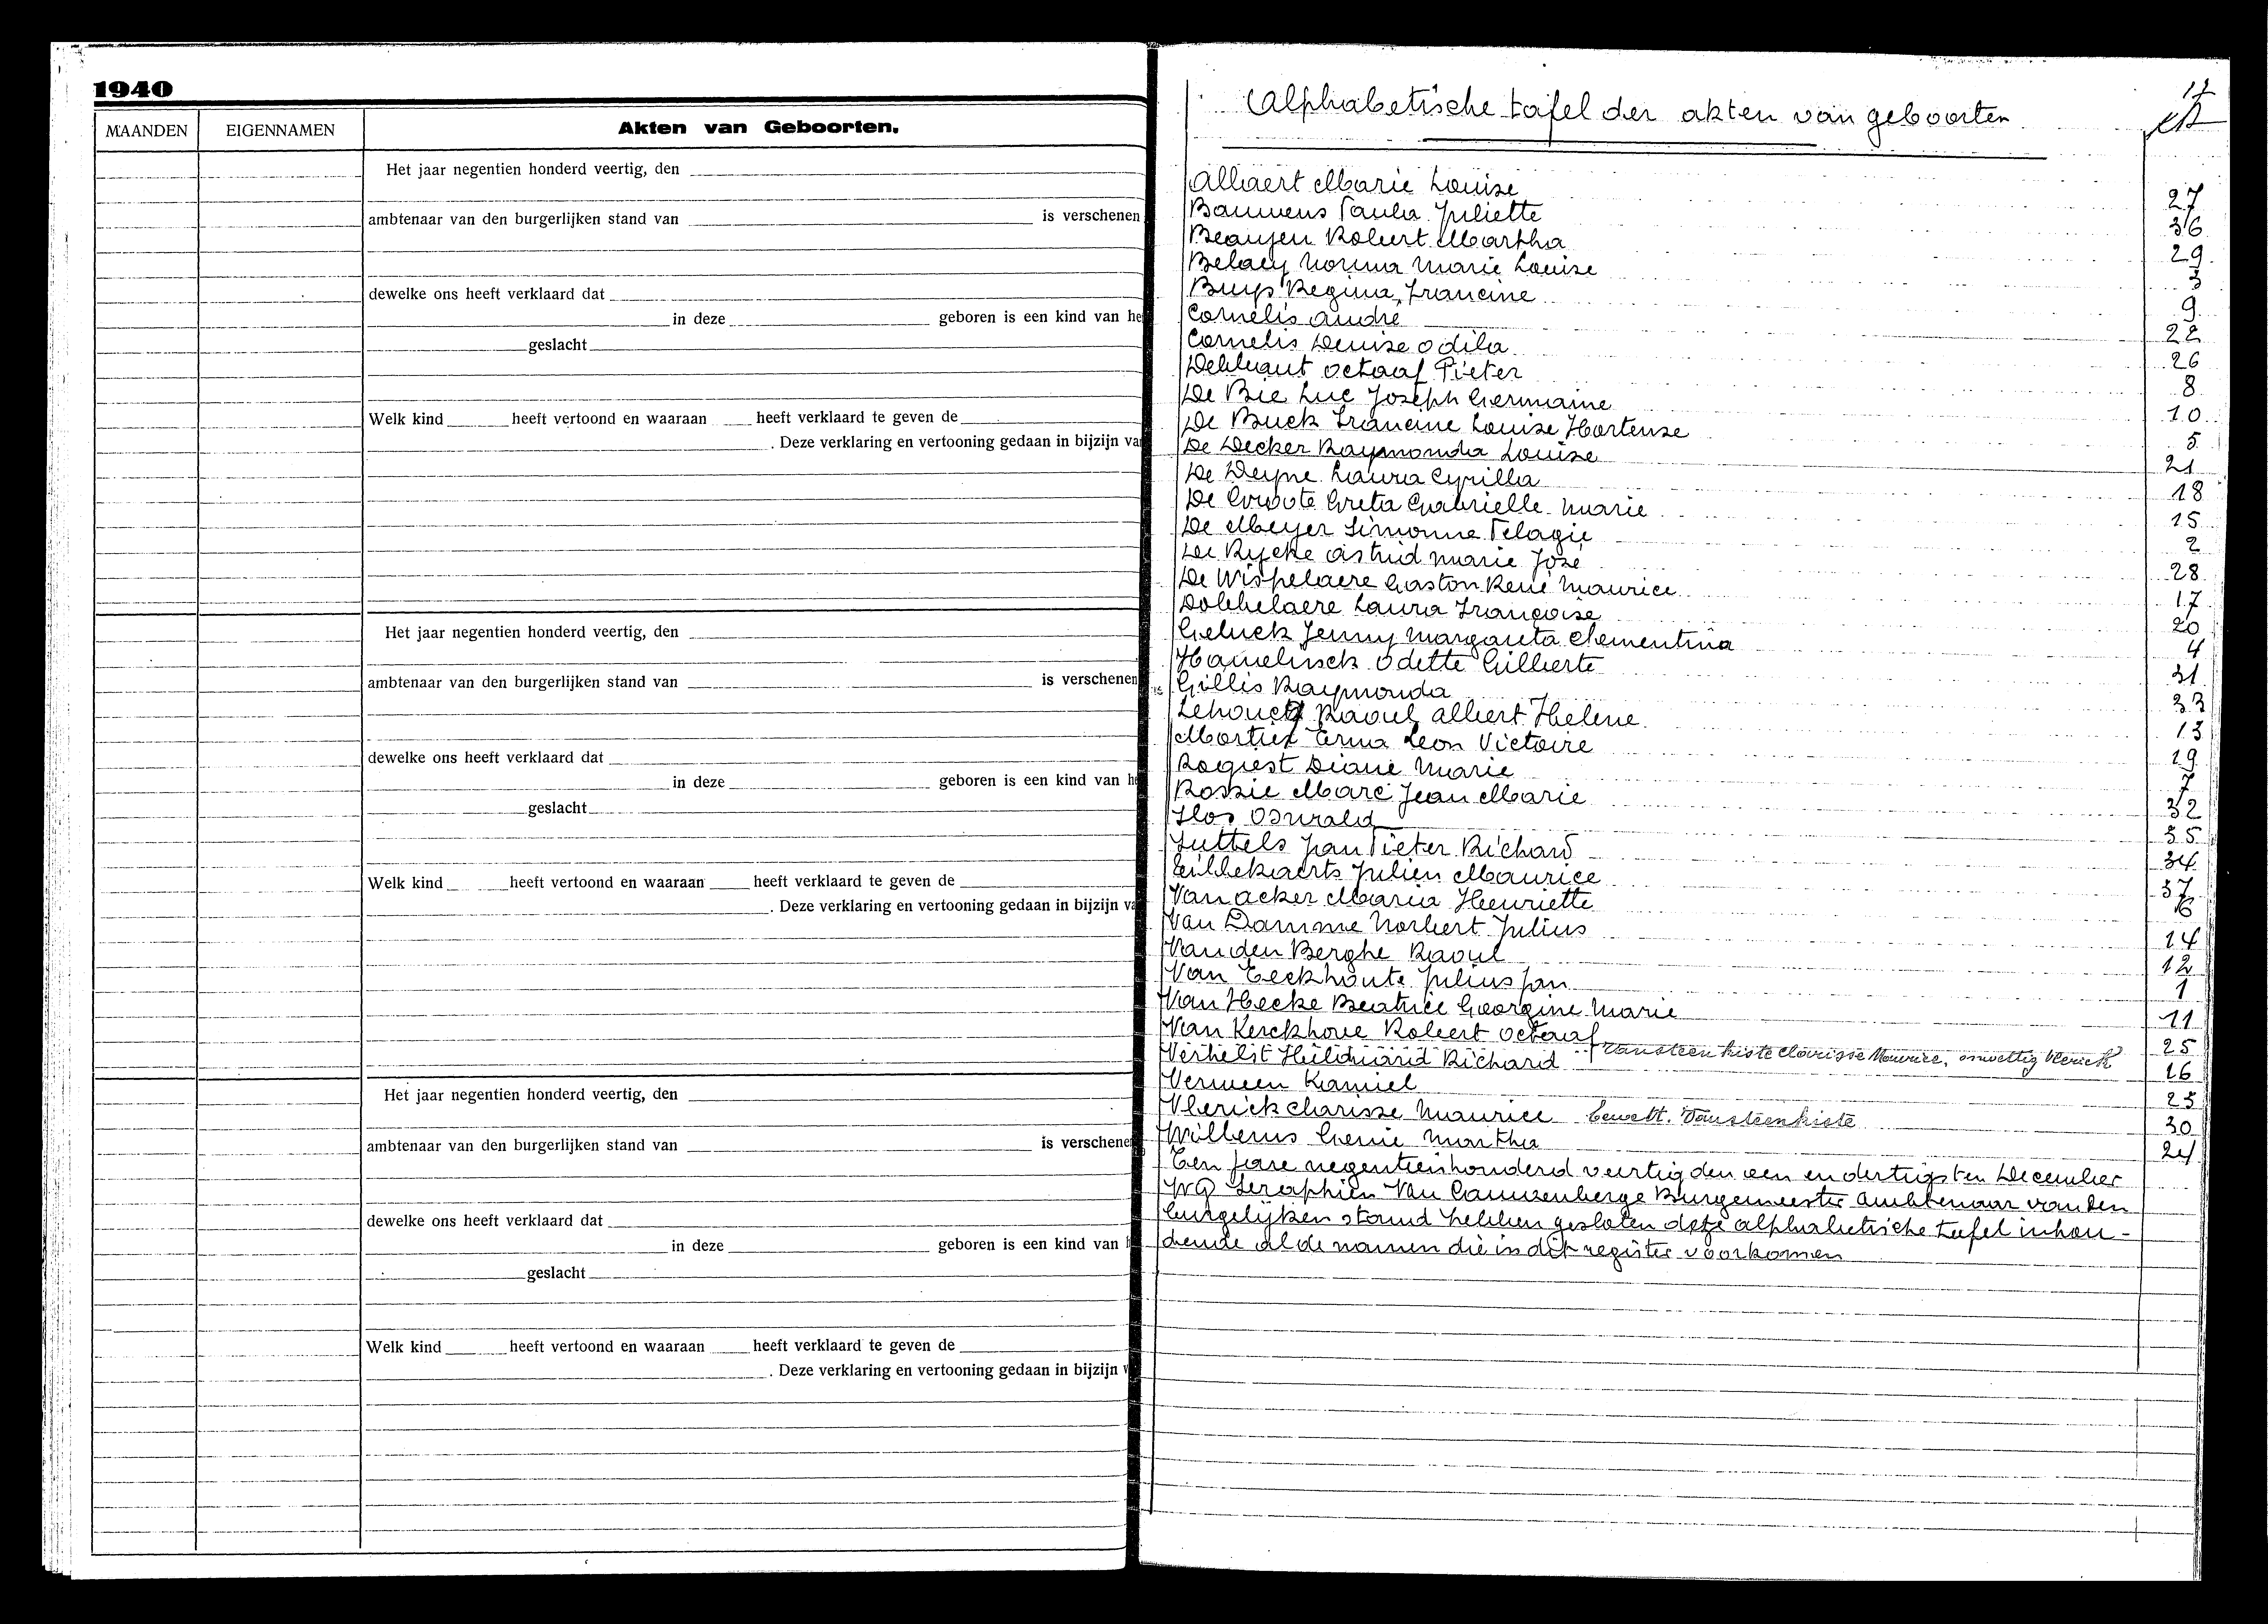 1940
MAANDEN
EIGENNAMEN
Akten van Geboorten.
Het jaar negentien honderd veertig, den
ambtenaar van den burgerlijken stand van is verschenen
dewelke ons heeft verklaard dat
in deze geboren is een kind van he
geslacht
Welk kind heeft vertoond en waaraan heeft verklaard te geven de
. Deze verklaring en vertooning gedaan in bijzijn va
Het jaar negentien honderd veertig, den
ambtenaar van den burgerlijken stand van is verschenen
dewelke ons heeft verklaard dat
in deze geboren is een kind van h
geslacht
Welk kind heeft vertoond en waaraan heeft verklaard te geven de
. Deze verklaring en vertooning gedaan in bijzijn va
Het jaar negentien honderd veertig, den
ambtenaar van den burgerlijken stand van is verschene
dewelke ons heeft verklaard dat
in deze geboren is een kind van
geslacht
Welk kind heeft vertoond en waaraan heeft verklaard te geven de
. Deze verklaring en vertooning gedaan in bijzijn v
17
Alphabetische tafel der akten van geboorten
Allaert Marie Louise 27
Bauwens Paula Juliette 36
Beaujen Robert Martha 29
Belaey Norma Marie Louise 3
Buys Regina Francine 9
Cornelis André 22
Cornelis Denise Odila 26
Dekluant Octaaf Pieter 8
De Bie Luc Joseph Germaine 10
De Buck Francine Louise Hortense 5
De Decker Raymonda Louise 21
De Deyne Laura Cyrilla 18
De Groote Greta Gabrielle Marie 15
De Meyer Simonne Pelagie 2
De Rycke Astrid Marie José 28
De Wispelaere Gaston René Maurice 17
Dobbelaere Laura Françoise 20
Geluck Jenny Margareta Clementina 4
Hamelinck Odette Gilberte 31
Gillis Raymonda 33
Lehouck Raoul Albert Helene 13
Mortier Erna Leon Victoire 19
Rogiest Diane Marie 7
Rossie Marc Jean Marie 32
Slos Oswald 35
Suttels Jan Pieter Richard 34
Tillekaerts Julien Maurice 37
Van Acker Maria Henriette 6
Van Damme Norbert Julius 14
Van den Berghe Raoul 12
Van Eeckhoute Julius Jan 1
Van Hecke Beatrice Georgine Marie 11
Van Kerckhove Robert Octaaf 25
Verhelst Hildward Richard Vansteenkiste Clarisse Maurice, onwettig Vlerick 16
Vermeen Kamiel 23
Vlerick Clarisse Maurice bewett. Vansteenkiste 30
Willems Genie Martha 24
Ten jare negentienhonderd veertig den een en dertigsten December
Wij Seraphien Van Cauwenberge Burgemeester Ambtenaar van den
burgelijken stand hebben gesloten deze alphabetische tafel inhou-
dende al de namen die in dit register voorkomen